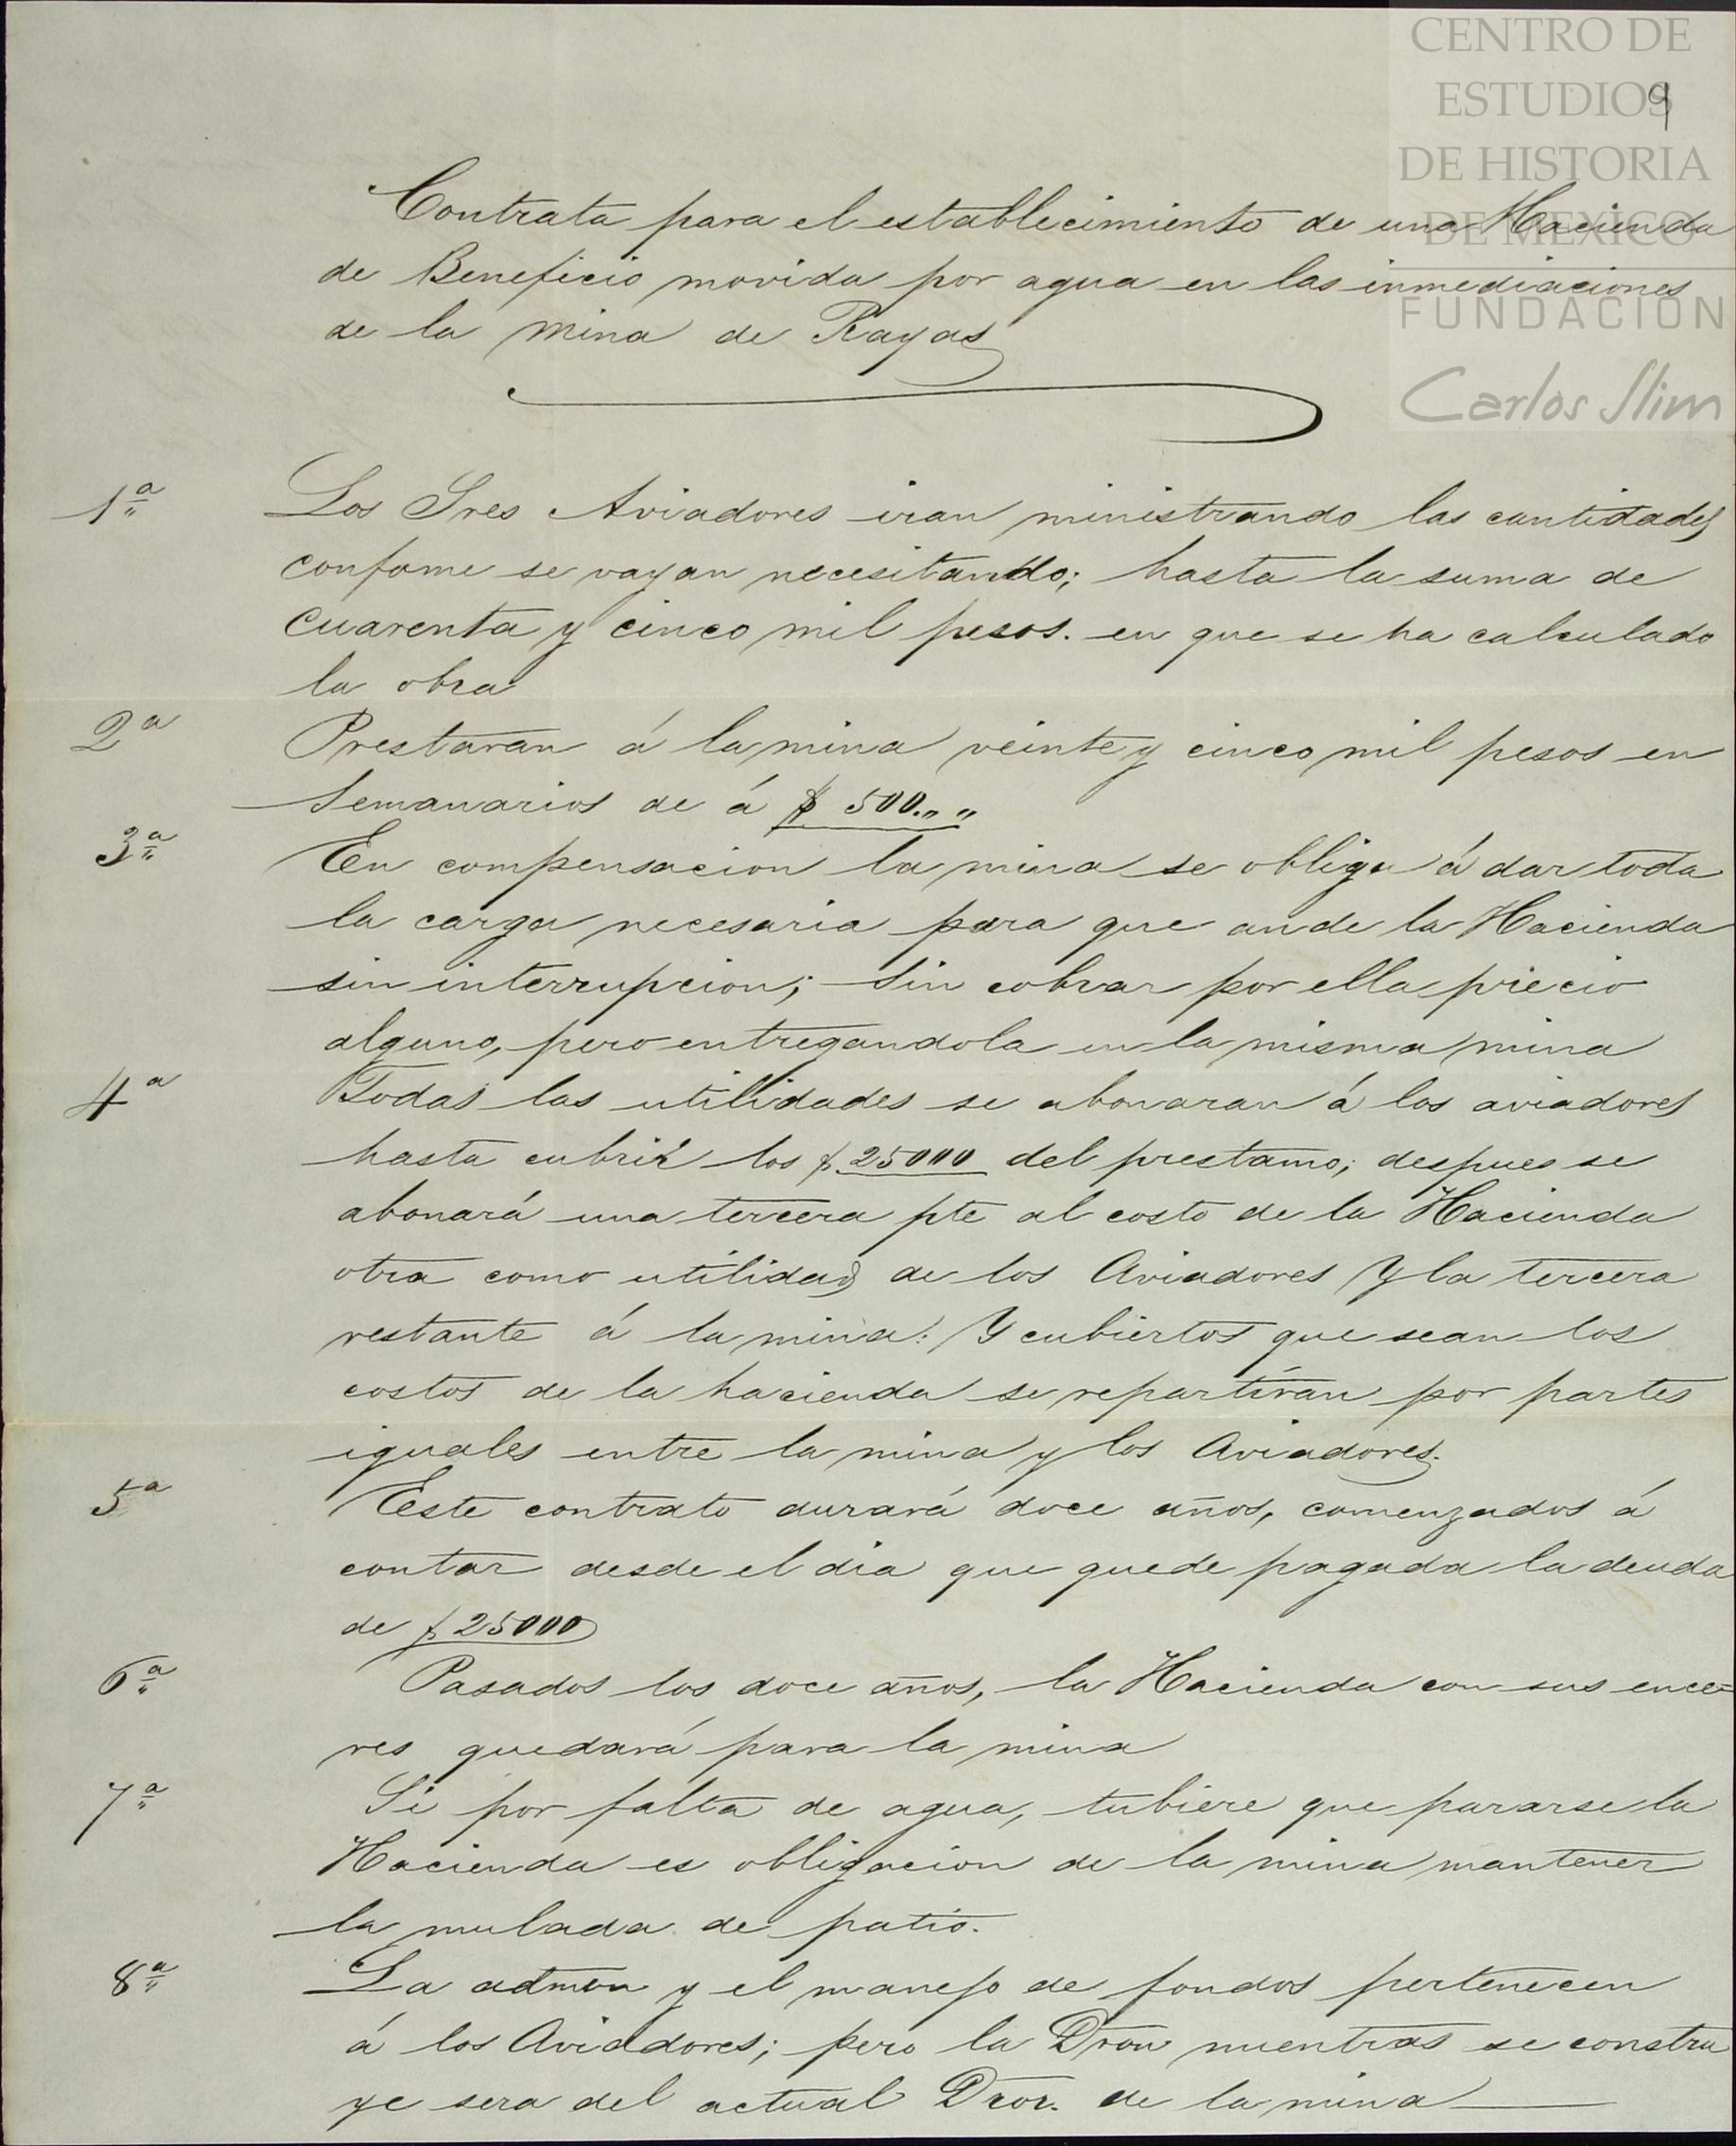 CENTRO DE
ESTUDIOS
9
DE HISTORIA
DE MEXICO
FUNDACIÓN
Carlos Slim
Contrata para el establecimiento de una Hacienda
de Beneficio movida por agua en las inmediaciones
de la mina de Rayas
1ª Los Sres Aviadores iran ministrando las cantidades
confome se vayan necesitando; hasta la suma de
cuarenta y cinco mil pesos. en que se ha calculado
la obra
2ª Prestaran á la mina veinte y cinco mil pesos en
Semanarios de á $ 500.,, ,,
3ª En compensacion la mina se obliga á dar toda
la carga necesaria para que ande la Hacienda
sin interrupcion; sin cobrar por ella precio
alguno, pero entregandola en la misma mina
4ª Todas las utilidades se abonaran á los aviadores
hasta cubrir los $ 25000 del prestamo; despues se
abonará una tercera pte al costo de la Hacienda
otra como utilidad de los Aviadores Y la tercera
restante á la mina: Y cubiertos que sean los
costos de la hacienda se repartiran por partes
iguales entre la mina y los Aviadores.
5ª Este contrato durará doce años, comenzados á
contar desde el dia que quede pagada la deuda
de $ 25000
6ª Pasados los doce años, la Hacienda con sus ence=
res quedará para la mina
7ª Si por falta de agua, tubiere que pararse la
Hacienda es obligacion de la mina mantener
la mulada de patio.
8ª La admon y el manejo de fondos pertenecen
á los Aviadores; pero la Dron mientras se constru
ye sera del actual Dror. de la mina